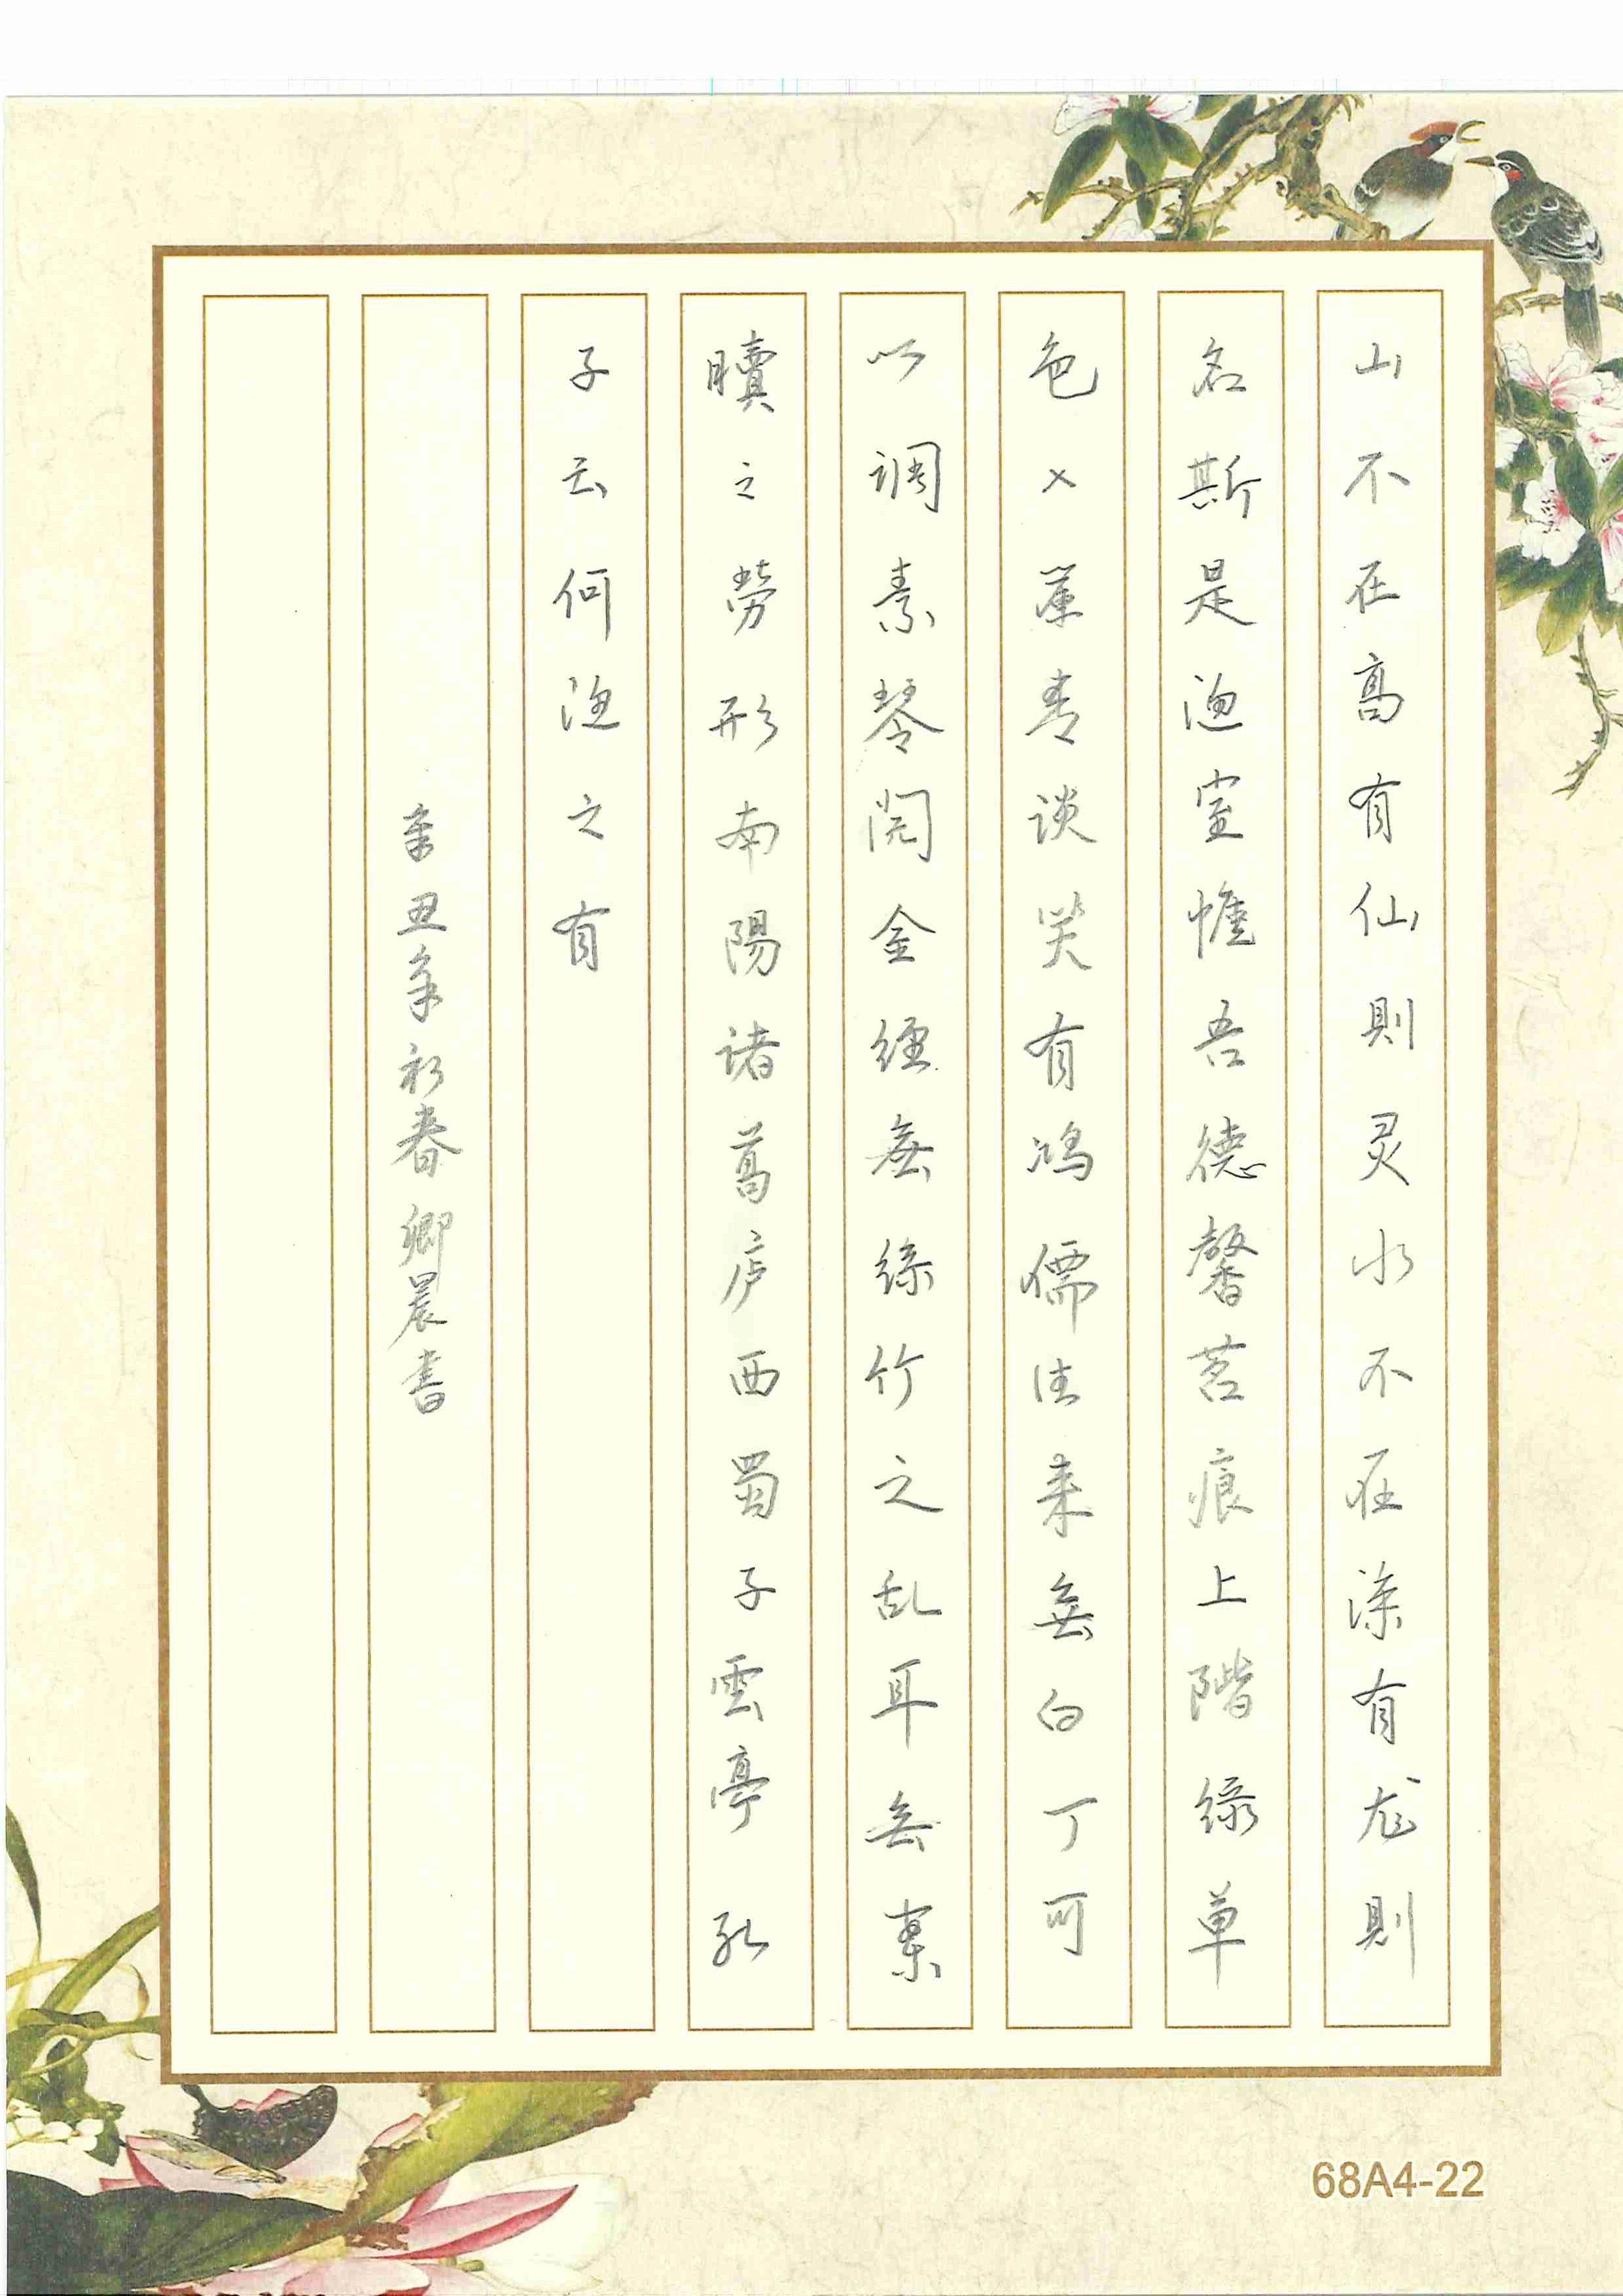 山不在高有仙則灵水不在深有龙則
名斯是陋室惟吾德馨苔痕上階绿草
色入簾青谈笑有鸿儒往来無白丁可
以调素琴閲金經無絲竹之乱耳無案
牘之勞形南陽诸葛庐西蜀子雲亭孔
子云何陋之有
辛丑年初春卿晨書
68A4-22